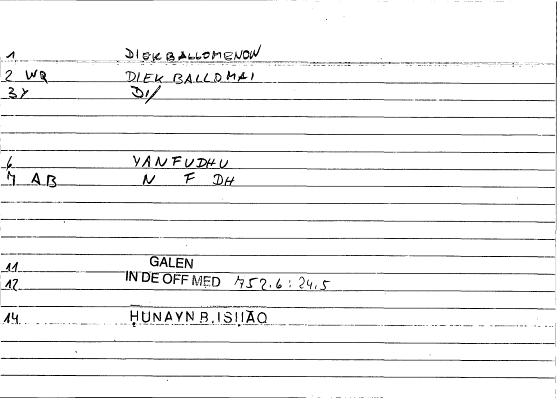 1 DIEKBALLOMENOW
2 WQ DIEKBALLOMAI
3Y DI/
6 YANFUDHU
7 AB N F DH
11 GALEN
12 IN DE OFF MED 752.6:24.5
14 ḤUNAYN B. ISḤĀQ